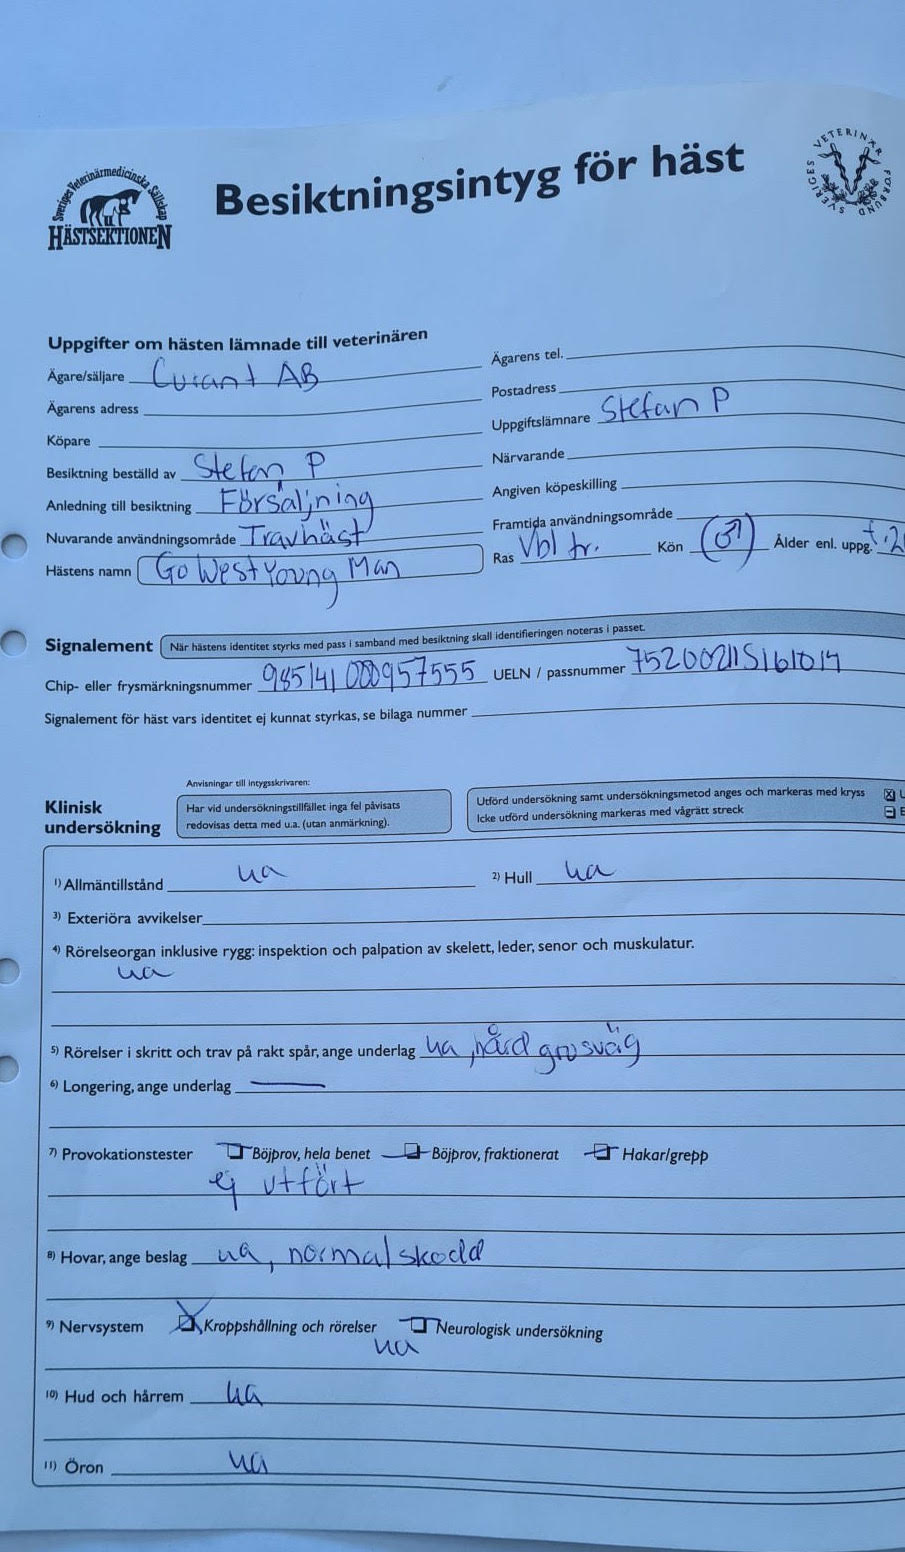 Sveriges Veterinärmedicinska Sällskap
HÄSTSEKTIONEN
Besiktningsintyg för häst
SVERIGES VETERINÄRFÖRBUND
Uppgifter om hästen lämnade till veterinären
Ägare/säljare Curant AB
Ägarens tel.
Ägarens adress
Postadress
Köpare
Uppgiftslämnare Stefan P
Besiktning beställd av Stefan P
Närvarande
Anledning till besiktning Försäljning
Angiven köpeskilling
Nuvarande användningsområde Travhäst
Framtida användningsområde
Hästens namn Go West Young Man
Ras Vbl tr. Kön (♂) Ålder enl. uppg.
Signalement När hästens identitet styrks med pass i samband med besiktning skall identifieringen noteras i passet.
Chip- eller frysmärkningsnummer 985141000957555 UELN / passnummer 752002115161014
Signalement för häst vars identitet ej kunnat styrkas, se bilaga nummer
Anvisningar till intygsskrivaren:
Klinisk undersökning
Har vid undersökningstillfället inga fel påvisats
redovisas detta med u.a. (utan anmärkning).
Utförd undersökning samt undersökningsmetod anges och markeras med kryss
Icke utförd undersökning markeras med vågrätt streck
1) Allmäntillstånd ua
2) Hull ua
3) Exteriöra avvikelser
4) Rörelseorgan inklusive rygg: inspektion och palpation av skelett, leder, senor och muskulatur.
ua
5) Rörelser i skritt och trav på rakt spår, ange underlag ua, hård grusväg
6) Longering, ange underlag
7) Provokationstester Böjprov, hela benet Böjprov, fraktionerat Hakar/grepp
ej utfört
8) Hovar, ange beslag ua, normalskodd
9) Nervsystem Kroppshållning och rörelser Neurologisk undersökning
ua
10) Hud och hårrem ua
11) Öron ua